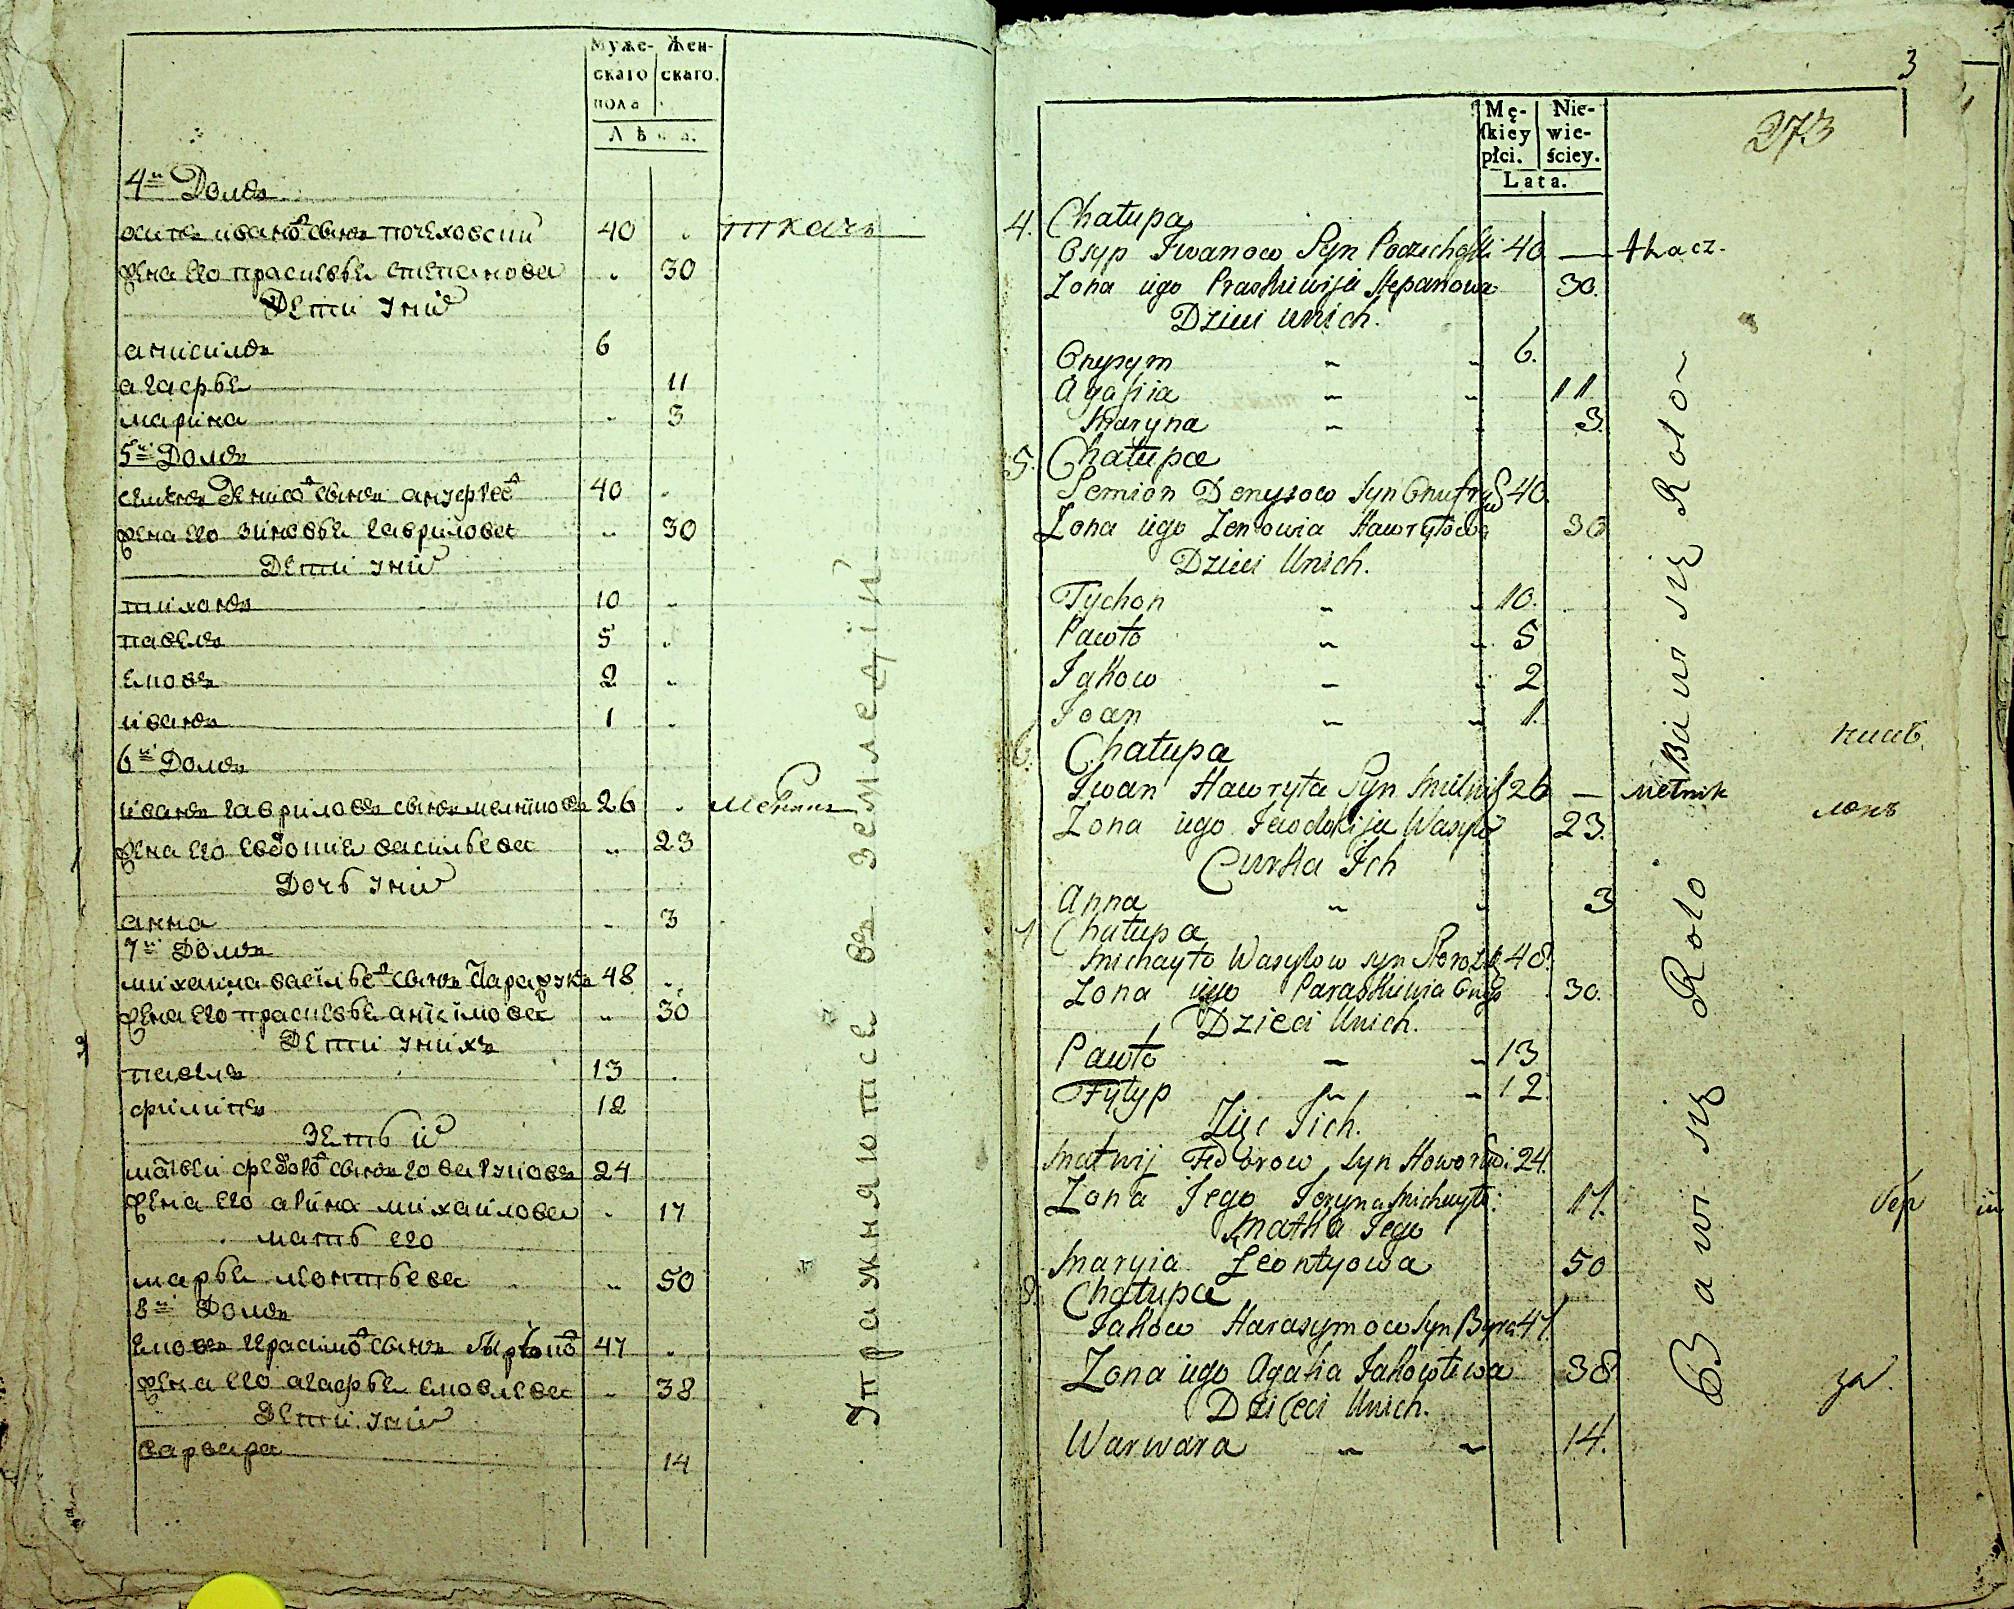 Муже- Жен-
скаго скаго.
пола
Лѣта.
4й Домъ
осипъ ивановъ сынъ почеховский 40 ткачъ
жена его прасковья степанова 30
Дети у них
анисимъ 6
агафья 11
марина 3
5й Домъ
семенъ денисовъ сынъ 40
жена его зиновья гаврилова 30
Дети у них
тихонъ 10
павелъ 5
яковъ 2
иванъ 1
6й Домъ
иванъ гавриловъ сынъ 26
жена его евдокия васильева 23
Дочь у них
анна 3
7й Домъ
михаила васильевъ сынъ 48
жена его прасковья анисимова 30
Дети у нихъ
павелъ 13
филипъ 12
Зеть их
матвей федоровъ сынъ 24
жена его арина михайлова 17
мать его
марья леонтьева 50
8й Домъ
яковъ герасимовъ сынъ 47
жена его агафья яковлева 38
Дети у них
варвара 14
Упражняются въ земледѣлии
3
273
Mę- Nie-
skiey wie-
płci. ściey.
Lata.
4. Chałupa
Osyp Iwanow Syn 40 — tkacz.
Zona iego Praskiewija Stepanowa 30.
Dzieci unich.
Onysym 6.
Agafija 11
Maryna 3.
5. Chałupa
Semion Denysow Syn 40.
Zona iego Zenowia Hawryłowa 30
Dzieci Unich.
Tychon 10.
Pawło 5
Jakow 2
Joan 1.
6. Chałupa
Iwan Hawryła Syn 26 — melnik
Zona iego Jewdokija Wasyl 23.
Curka Ich
Anna 3
7 Chałupa
Michayło Wasylow syn 48.
Zona iego Paraskiewia 30.
Dzieci Unich.
Pawło 13
Fylyp 12.
Zięć Jich.
Matwij Fedorow Syn 24.
Zona Jego Jeryna Michayło: 17.
Matka Jego
Maryia Leontyowa 50
8. Chałupa
Jakow Harasymow Syn 47.
Zona iego Agafia Jakowlewa 38
Dzieci Unich.
Warwara 14.
Bawi się Rolo Bawi się Rolo